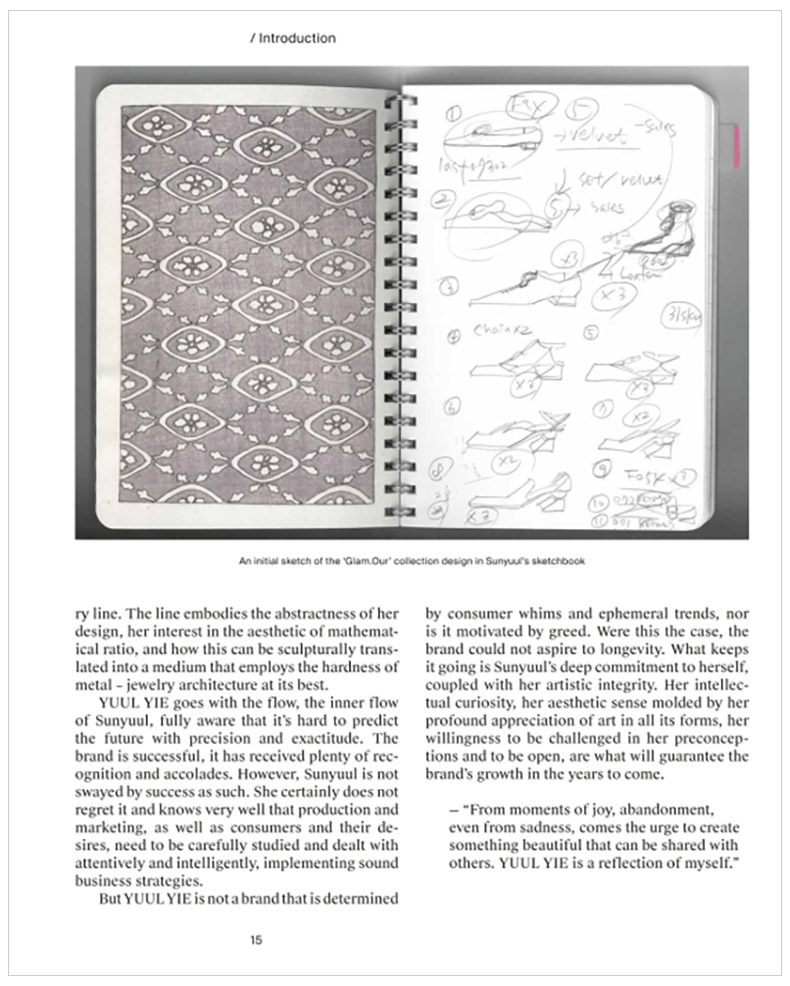 / Introduction
1
Fax
5
→ velvet
-Sales
set/velvet
2
5
→ Sales
x3
3
x3
31sky
4
chain x2
5
x3
x3
6
7
x2
x2
8
9
x3
10
11
An initial sketch of the ‘Glam.Our’ collection design in Sunyuul’s sketchbook
ry line. The line embodies the abstractness of her
design, her interest in the aesthetic of mathemat-
ical ratio, and how this can be sculpturally trans-
lated into a medium that employs the hardness of
metal – jewelry architecture at its best.
YUUL YIE goes with the flow, the inner flow
of Sunyuul, fully aware that it’s hard to predict
the future with precision and exactitude. The
brand is successful, it has received plenty of rec-
ognition and accolades. However, Sunyuul is not
swayed by success as such. She certainly does not
regret it and knows very well that production and
marketing, as well as consumers and their de-
sires, need to be carefully studied and dealt with
attentively and intelligently, implementing sound
business strategies.
But YUUL YIE is not a brand that is determined
by consumer whims and ephemeral trends, nor
is it motivated by greed. Were this the case, the
brand could not aspire to longevity. What keeps
it going is Sunyuul’s deep commitment to herself,
coupled with her artistic integrity. Her intellec-
tual curiosity, her aesthetic sense molded by her
profound appreciation of art in all its forms, her
willingness to be challenged in her preconcep-
tions and to be open, are what will guarantee the
brand’s growth in the years to come.
– “From moments of joy, abandonment,
even from sadness, comes the urge to create
something beautiful that can be shared with
others. YUUL YIE is a reflection of myself.”
15